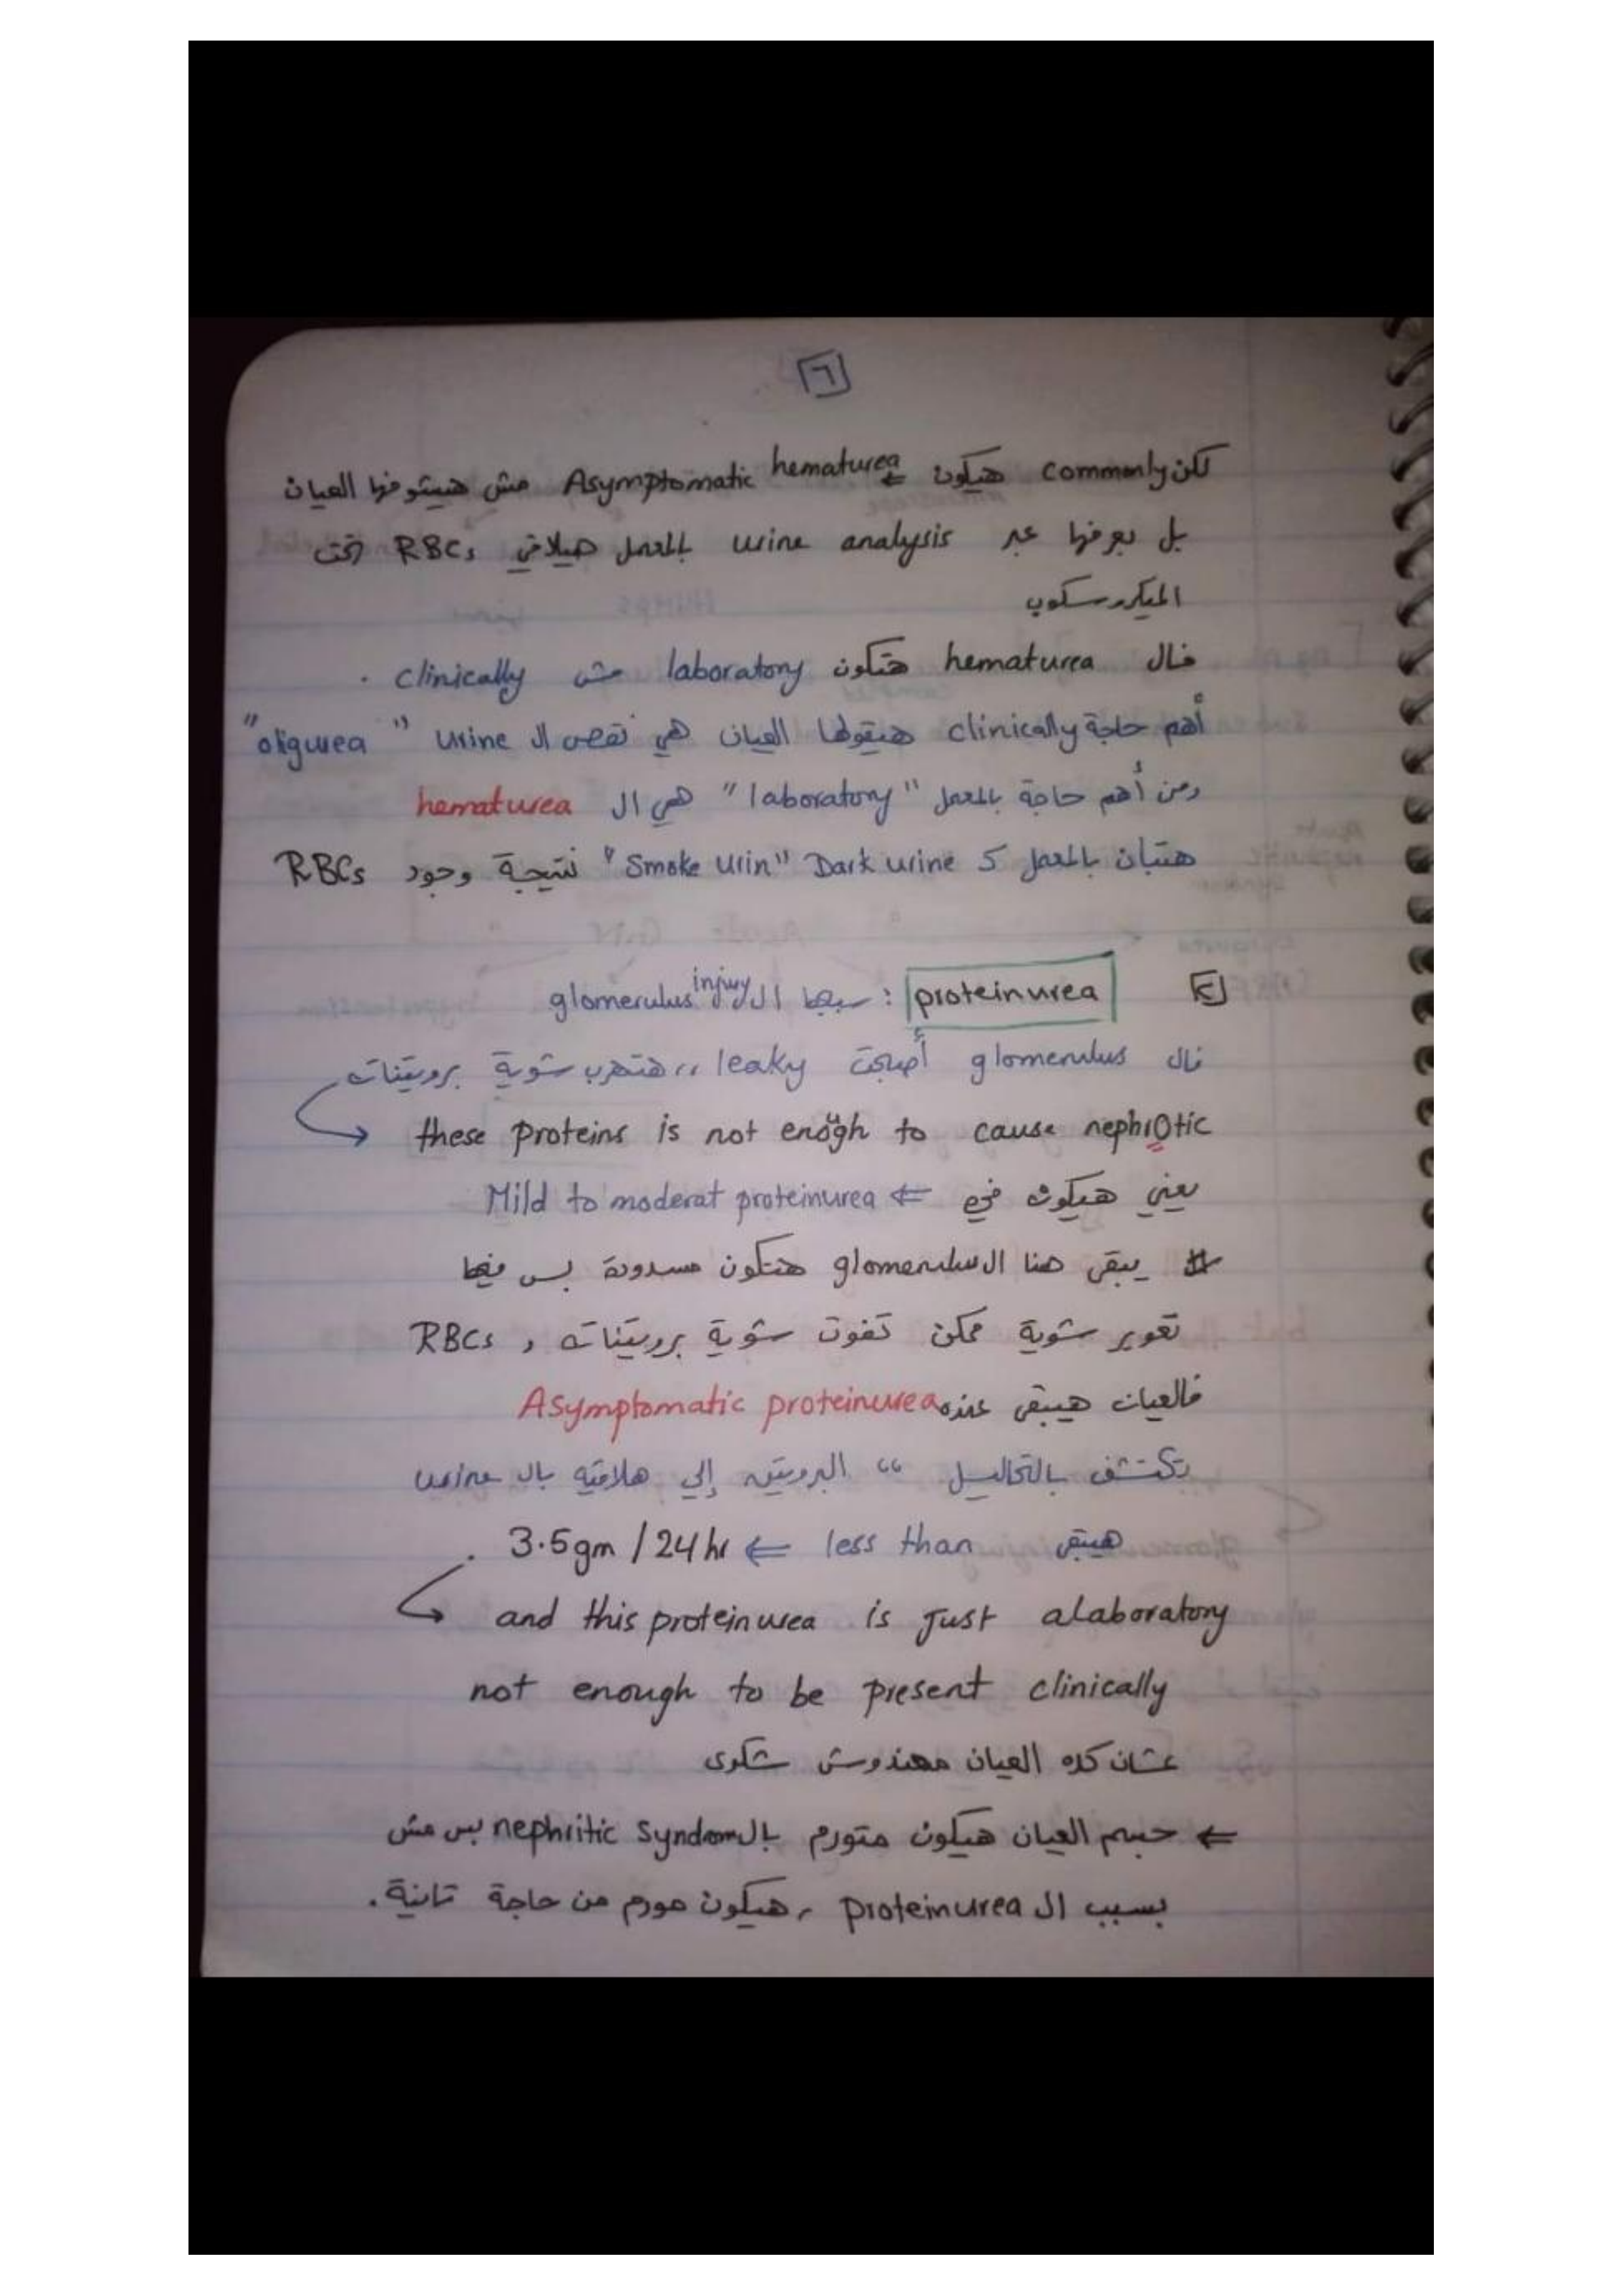 [٦]
لكن commonly هيكون ⇐ Asymptomatic hematurea مش هيشوفها العيان
بل يعرفها عبر urine analysis بالمعمل هيلاقي RBCs تحت
الميكروسكوب
فال hematurea هتكون laboratory مش clinically .
أهم حاجة clinically هيقولها العيان هي نقص ال urine "oligurea"
ومن أهم حاجة بالمعمل "laboratory" هي ال hematurea
هتبان بالمعمل ك Dark urine "Smoke urin" نتيجة وجود RBCs
proteinurea : سببها ال glomerulus injury
فال glomerulus أصبحت leaky ،، هتهرب شوية بروتينات
these proteins is not enough to cause nephrOtic
يعني هيكون في ⇐ Mild to moderat proteinurea
# يبقى هنا ال glomerulus هتكون مسدودة بس فيها
تعوير شوية ممكن تفوت شوية بروتينات و RBCs
فالعيان هيبقى عنده Asymptomatic proteinurea
تكتشف بالتحاليل “ البروتين إلي هلاقيه بال urine
هيبقى less than ⇐ 3.5gm / 24 hr .
and this proteinurea is Just alaboratory
not enough to be present clinically
عشان كده العيان معندوش شكوى
⇐ جسم العيان هيكون متورم بال nephritic Syndrom بس مش
بسبب ال proteinurea ، هيكون مورم من حاجة تانية .